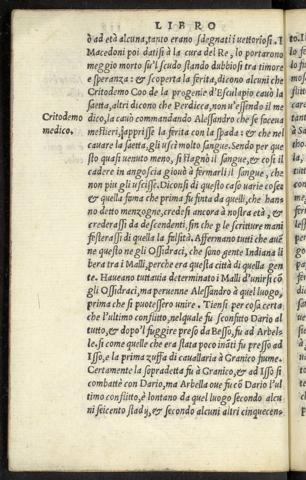 LIBRO
ò ad età alcuna, tanto erano sdegnati i uettoriosi. I
Macedoni poi datisi à la cura del Re, lo portarono
meggio morto su'l scudo stando dubbiosi tra timore
e speranza: & scoperta la ferita, dicono alcuni che
Critodemo Coo de la progenie d'Esculapio cauò la
saetta, altri dicono che Perdicca, non u'essendo il me
Critodemo medico.
dico, la cauò commandando Alessandro che se facena
mestieri, s'apprisse la ferita con la spada: & che nel
cauare la saetta, gli uscì molto sangue. Sendo per que
sto quasi uenuto meno, si stagnò il sangue, & così il
cadere in angoscia giouò à fermarli il sangue, che
non piu gli uscisse. Diconsi di questo caso uarie cose
& quella fama che prima fu finta da quelli, che han-
no detto menzogne, credesi ancora à nostra età, &
crederassi da descendenti, fin che p le scritture mani
festerassi di quella la falsità. Affermano tutti che auë
ne questo ne gli Ossidraci, che sono gente Indiana li
bera tra i Malli, perche era questa città di quella gen
te. Haueano tuttauia determinato i Malli d'unirsi cō
gli Ossidraci, ma peruenne Alessandro à quel luogo,
prima che si puotessero unire. Tiensi per cosa certa
che l'ultimo conflitto, nel quale fu sconfitto Dario al
tutto, & dopo'l fuggire preso da Besso, fu ad Arbel-
le. si come quelle che era stata poco inãti fu presso ad
Isso, e la prima zuffa di cauallaria à Granico fiume.
Certamente la sopradetta fu à Granico, & ad Isso si
combattè con Dario, ma Arbella oue fu cō Dario l'ul
timo conflitto, è lontano da quel luogo secondo alcu
ni seicento stadij, & secondo alcuni altri cinquecen-